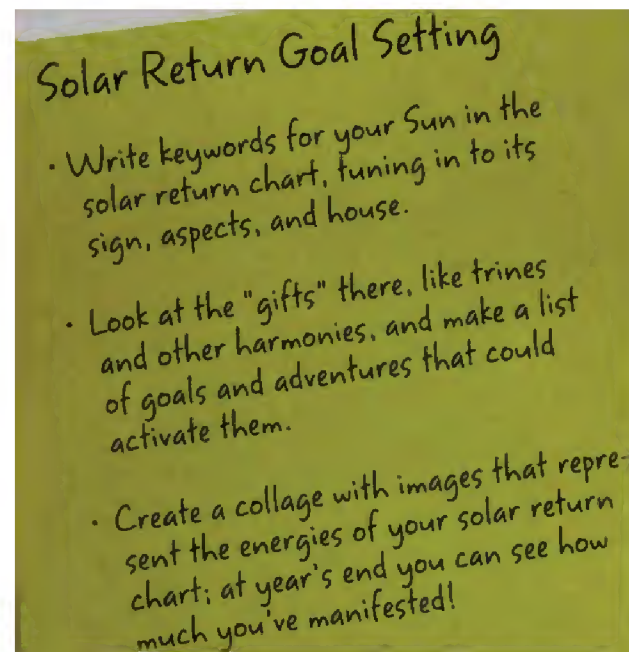 Solar Return Goal Setting
· Write keywords for your Sun in the
solar return chart, tuning in to its
sign, aspects, and house.
· Look at the "gifts" there, like trines
and other harmonies, and make a list
of goals and adventures that could
activate them.
· Create a collage with images that repre-
sent the energies of your solar return
chart; at year's end you can see how
much you've manifested!